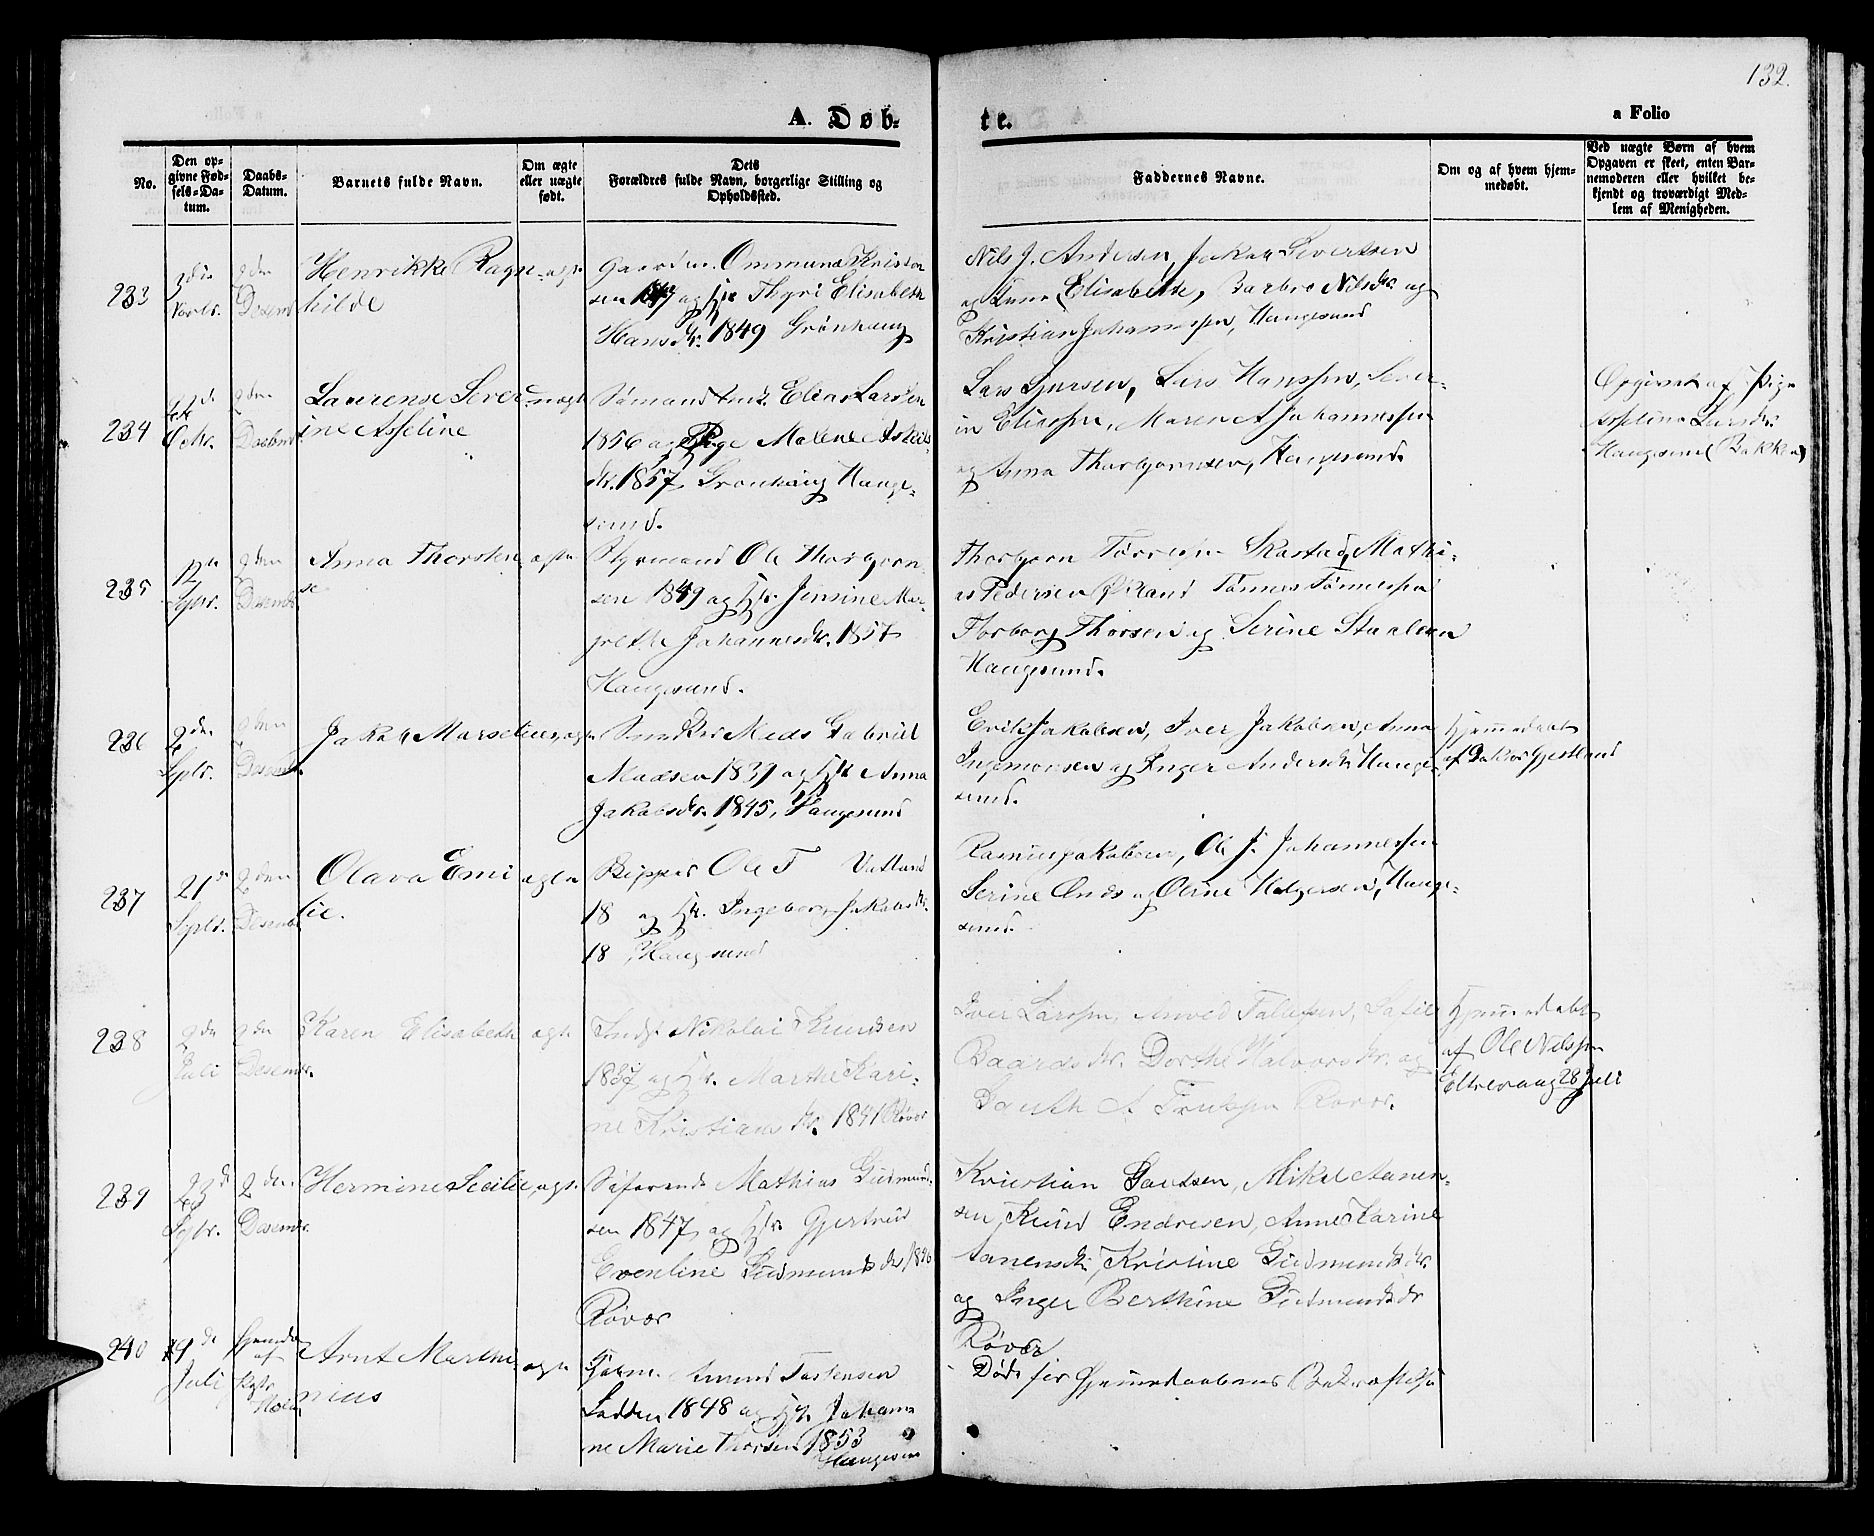 132.
A. Døb-
te.
a Folio
No.
Den op-
givne Fød-
sels-Da-
tum.
Daabs-
Datum.
Barnets fulde Navn.
Om ægte
eller uægte
født.
Dets
Forældres fulde Navn, borgerlige Stilling og
Opholdssted.
Faddernes Navne.
Om og af hvem hjem-
medøbt.
Ved uægte Børn af hvem
Opgaven er skeet, enten Bar-
nemoderen eller hvilket be-
kjendt og troværdigt Med-
lem af Menigheden.
233
3die
Novbr.
2den
Desemb
Henrikke Ragn-
hilde
ægte
Gaardm. Ommund Kristen
sen 1847 og Hst Thyri Elisabeth
Hansdtr. 1849 Grønhaug
Nils J. Andersen, Jakob Sivertsen
og Anna Elisabeth, Barbro Nilsdtr. og
Kristian Johannessen, Haugesund
234
Oktbr.
2den
Desemb.
Laurense Sever
ine Asseline
uægte
Sømand Enk. Elias Larsen
1856 og Pige Malene Askils
dtr. 1857 Grønhaug Hauge-
sund.
Lars Sjursen, Lars Hanssen, Sever-
in Eliassen, Maren A Johannessen
og Anna Thorbjørnsen, Haugesund.
Opgivet af Pige
Asseline Larsdtr.
Haugesund (Bakken)
235
12te
Septbr.
2den
Desemb.
Anna Thorsten
se
ægte
Styrmand Ole Thorbjørn
sen 1849 og Hst. Jensine Mar-
grethe Johannesdtr. 1857
Haugesund.
Thorbjørn Skastad, Mathi-
as Pedersen Økland Tønnes Tønnessen
Torborg Thorsen og Serine Staalesen
Haugesund.
236
2den
Septbr.
2den
Desemb.
Jakob Marselius
ægte
Snedker Mads Gabriel
Madsen 1839 og Hst Anna
Jakobsdtr. 1845, Haugesund
Erik Jakobsen, Iver Jakobsen, Anna
Ingemonsen og Inger Andersdtr Hauge-
sund.
Hjemmedøbt
af Doktor Gjestland
237
21de
Septbr.
2den
Desemb.
Olava Emi
lie.
ægte
Bøpper Ole T Vatland
18 og Hst. Ingeborg Jakobsdtr.
18 , Haugesund
Rasmus Jakobsen, Ole J. Johannessen
Serine Enes og Oline Helgesen, Hauge-
sund.
238
2de
Juli
2den
Desemb.
Karen Elisabeth
ægte
Inds. Nikolai Knudsen
1837 og Hst. Marthe Kari-
ne Kristiansdtr. 1841 Røvær
Iver Larssen, Amved Tallefsen, Sofie
Baardsdtr. Dorthe Halvorsdtr. og
Røvær.
Hjemmedøbt
af Ole Nilssen
Eltrevaag 28 Juli
239
23de
Septbr.
2den
Desemb.
Hermine Secilie
ægte
Søfarende Mathias Gudmund-
sen 1847 og Hst. Gjertrud
Eveline Gudmundsdtr 1846
Røvær
Kristian Gautsen, Mikal Aanen-
sen, Knud Endresen, Anne Karine
Aanensdtr, Kristine Gudmundsdtr.
og Inger Berthine Gudmundsdtr
Røvær
240
19de
Juli
Hjemdø
af
Arnt Marthi-
nius
ægte
Amund Torstensen
Lodden 1848 og Hst. Johan-
ne Marie Thorsen 1853
Haugesun
Døde før Hjemmedaabens Bekræftelse